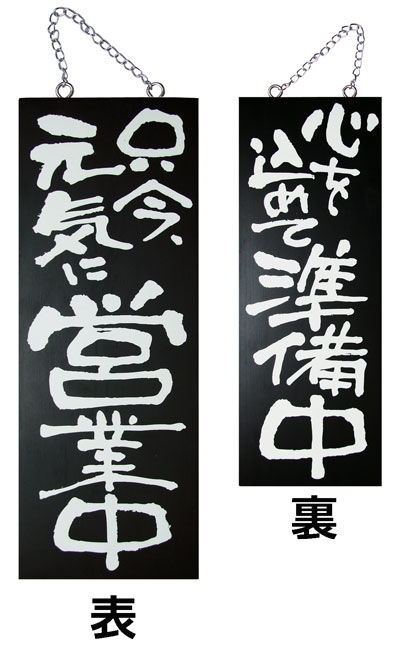 只今、
元気に
営業中
表
心を
込めて
準備中
裏